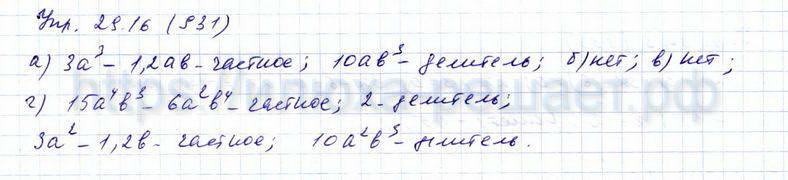 Упр. 29.16 (931)
а) 3a³ - 1,2ab - частное; 10ab³ - делитель; б) нет; в) нет;
г) 15a⁴b³ - 6a²b⁴ - частное; 2 - делитель;
3a² - 1,2b - частное; 10a²b³ - делитель.